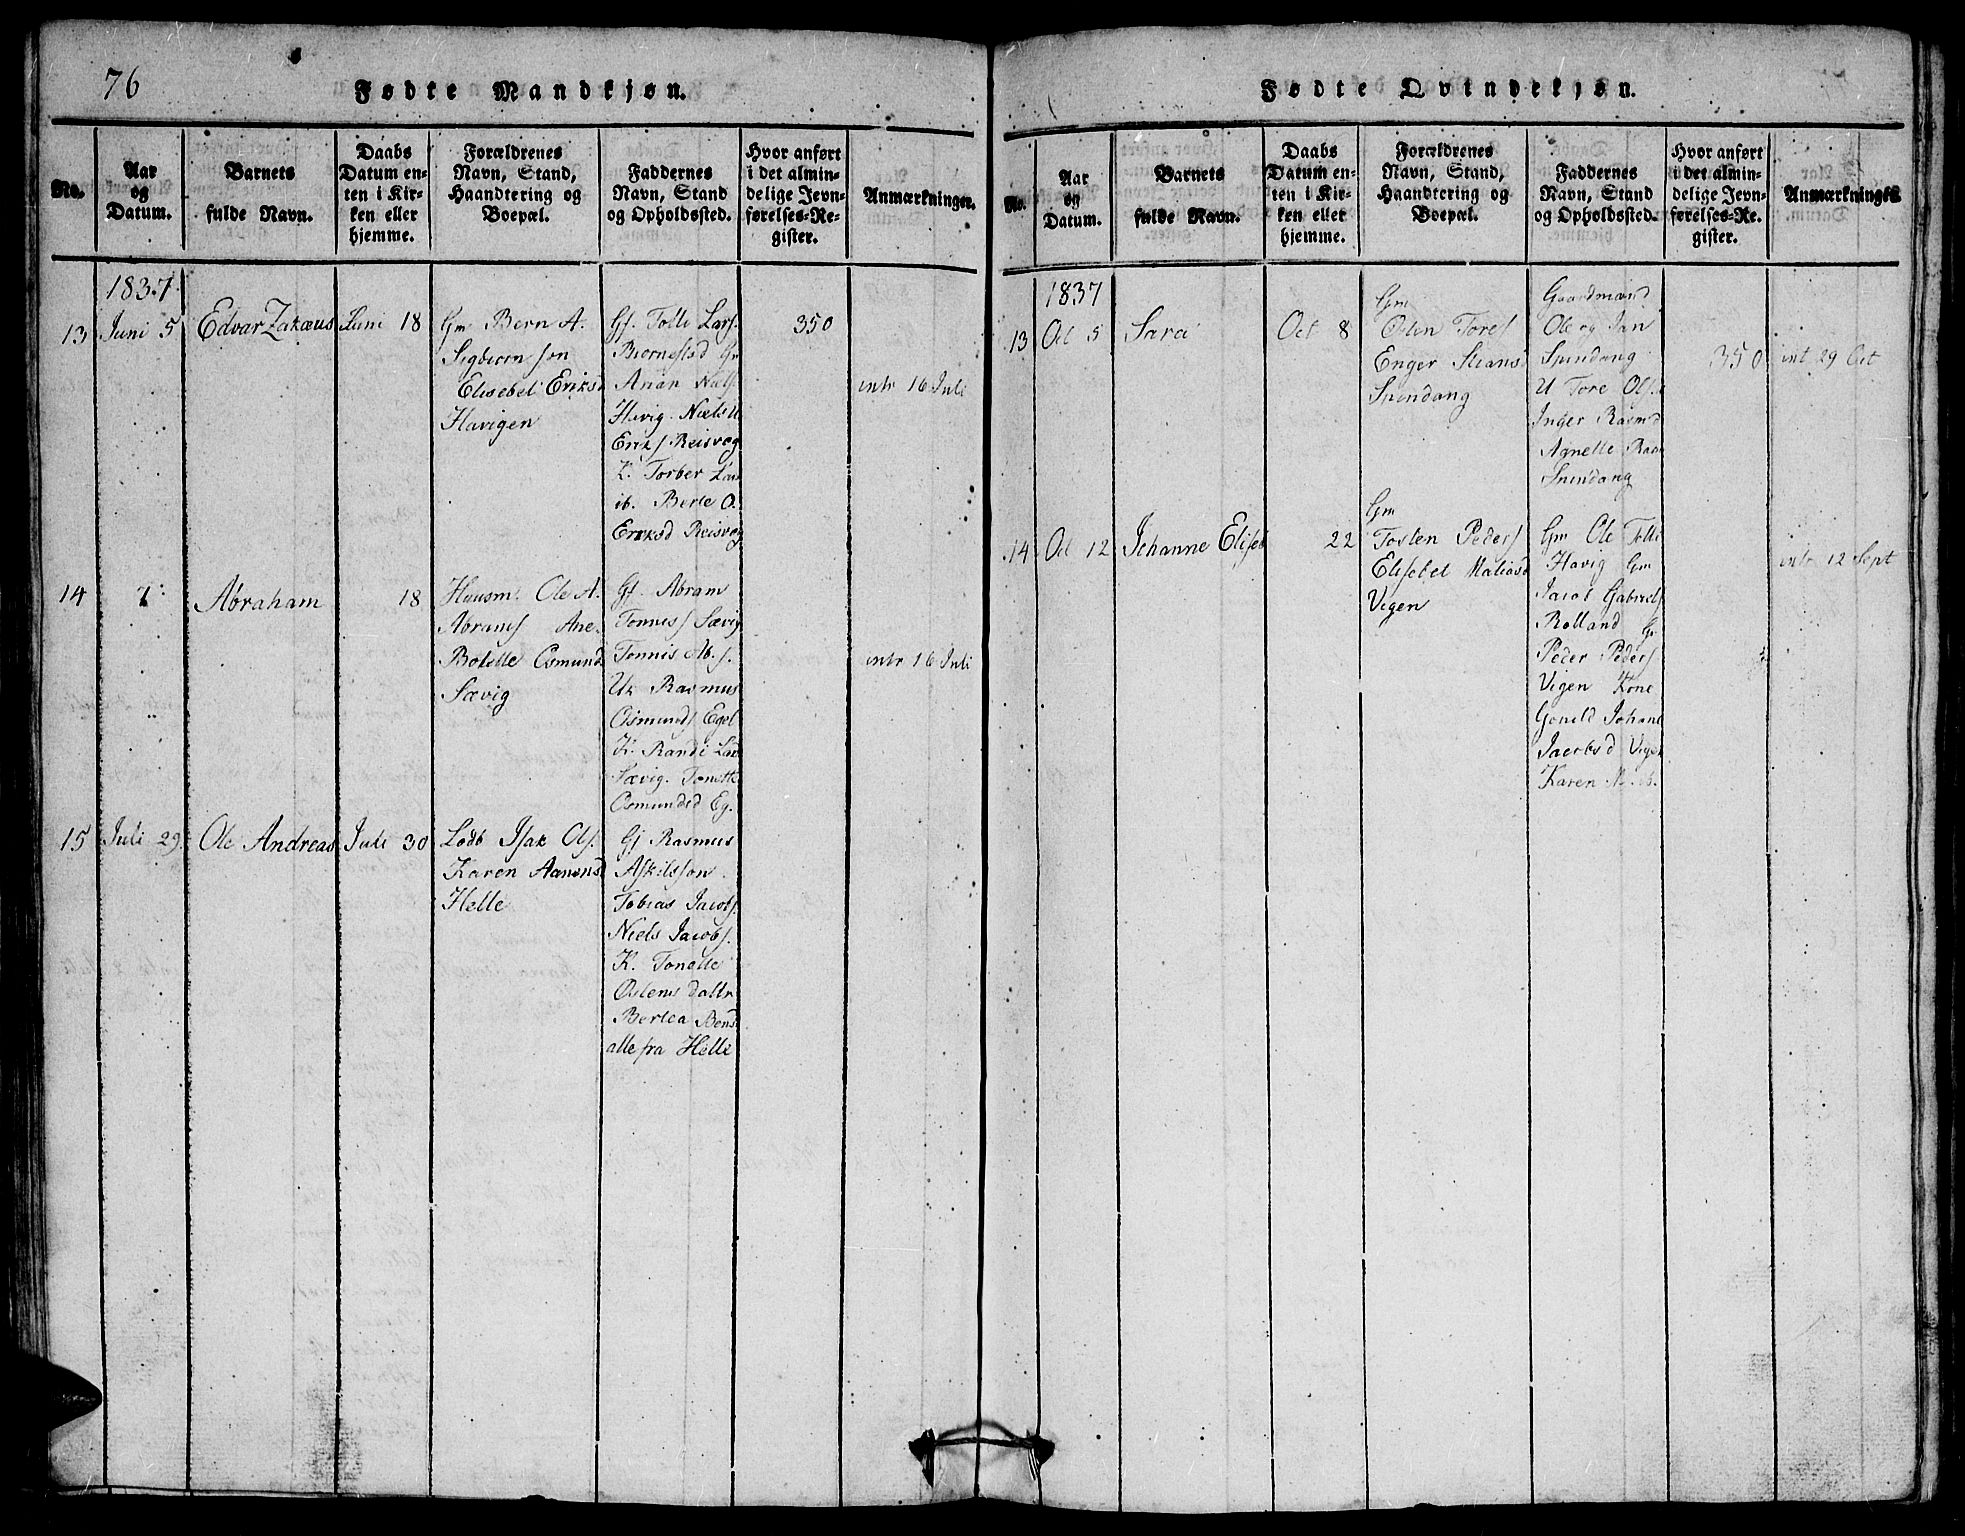 76
Fødte Mandkjøn.
No.
Aar
og
Datum.
Barnets
fulde Navn.
Daabs
Datum en-
ten i Kir-
ken eller
hjemme.
Forældrenes
Navn, Stand,
Haandtering og
Boepæl.
Faddernes
Navn, Stand
og Opholdssted.
Hvor anført
i det almin-
delige Jevn-
førelses-Re-
gister.
Anmærkninger.
1837
13
Juni 5
Edvar Zakæus
Juni 18
Gm Bern A.
Sigbiørn søn
Elisebet Eriksd
Havigen
Gf. Tolli Lars.
Biørnestad Gm
Anan Niels
Havig. Niels U
Eriks Reisvog
K. Torber Lar
ib. Berte O.
Eriksd Reisvog
350
intr 16 Juli
14
7
Abraham
18
Huusm. Ole A.
Abrams Ane
Bolette Osmund
Sævig
Gf. Abram
Tønnes Sævig
Tønnis Ab.
Uk Rasmus
Osmunds Egel
K. Randi Lar
Sævig. Tonette
Osmundsd Eg.
intr 16 Juli
15
Juli 29
Ole Andreas
Juli 30
Lodb Isak Ols.
Karen Aanensd
Helle
Gf Rasmus
Askilsson
Tobias Jacobs.
Niels Jacobs.
K. Tonette
Ostens dattr
Bertea Bens
alle fra Helle
Fødte Qvindekjøn.
No.
Aar
og
Datum.
Barnets
fulde Navn.
Daabs
Datum en-
ten i Kir-
ken eller
hjemme.
Forældrenes
Navn, Stand,
Haandtering og
Boepæl.
Faddernes
Navn, Stand
og Opholdssted.
Hvor anført
i det almin-
delige Jevn-
førelses-Re-
gister.
Anmærkninger.
1837
13
Oct 5
Sara
Oct 8
Gm
Osten Tores
Enger Stians
Spindang
Gaardmænd
Ole og Jan
Spindang
U Tore Ols.
Inger Rasmd
Agnette Ras
Spindang
350
int 29 Oct
14
Oct 12
Johanne Eliseb
22
Gm
Tosten Peders
Elisebet Matiasd
Vigen
Gm Ole Tolli
Havig Gm
Jacob Gabriels
Rolland Gm
Peder Peders
Vigen Kone
Gonild Johan
Jacobsd Vigen
Karen
intr 12 Sept